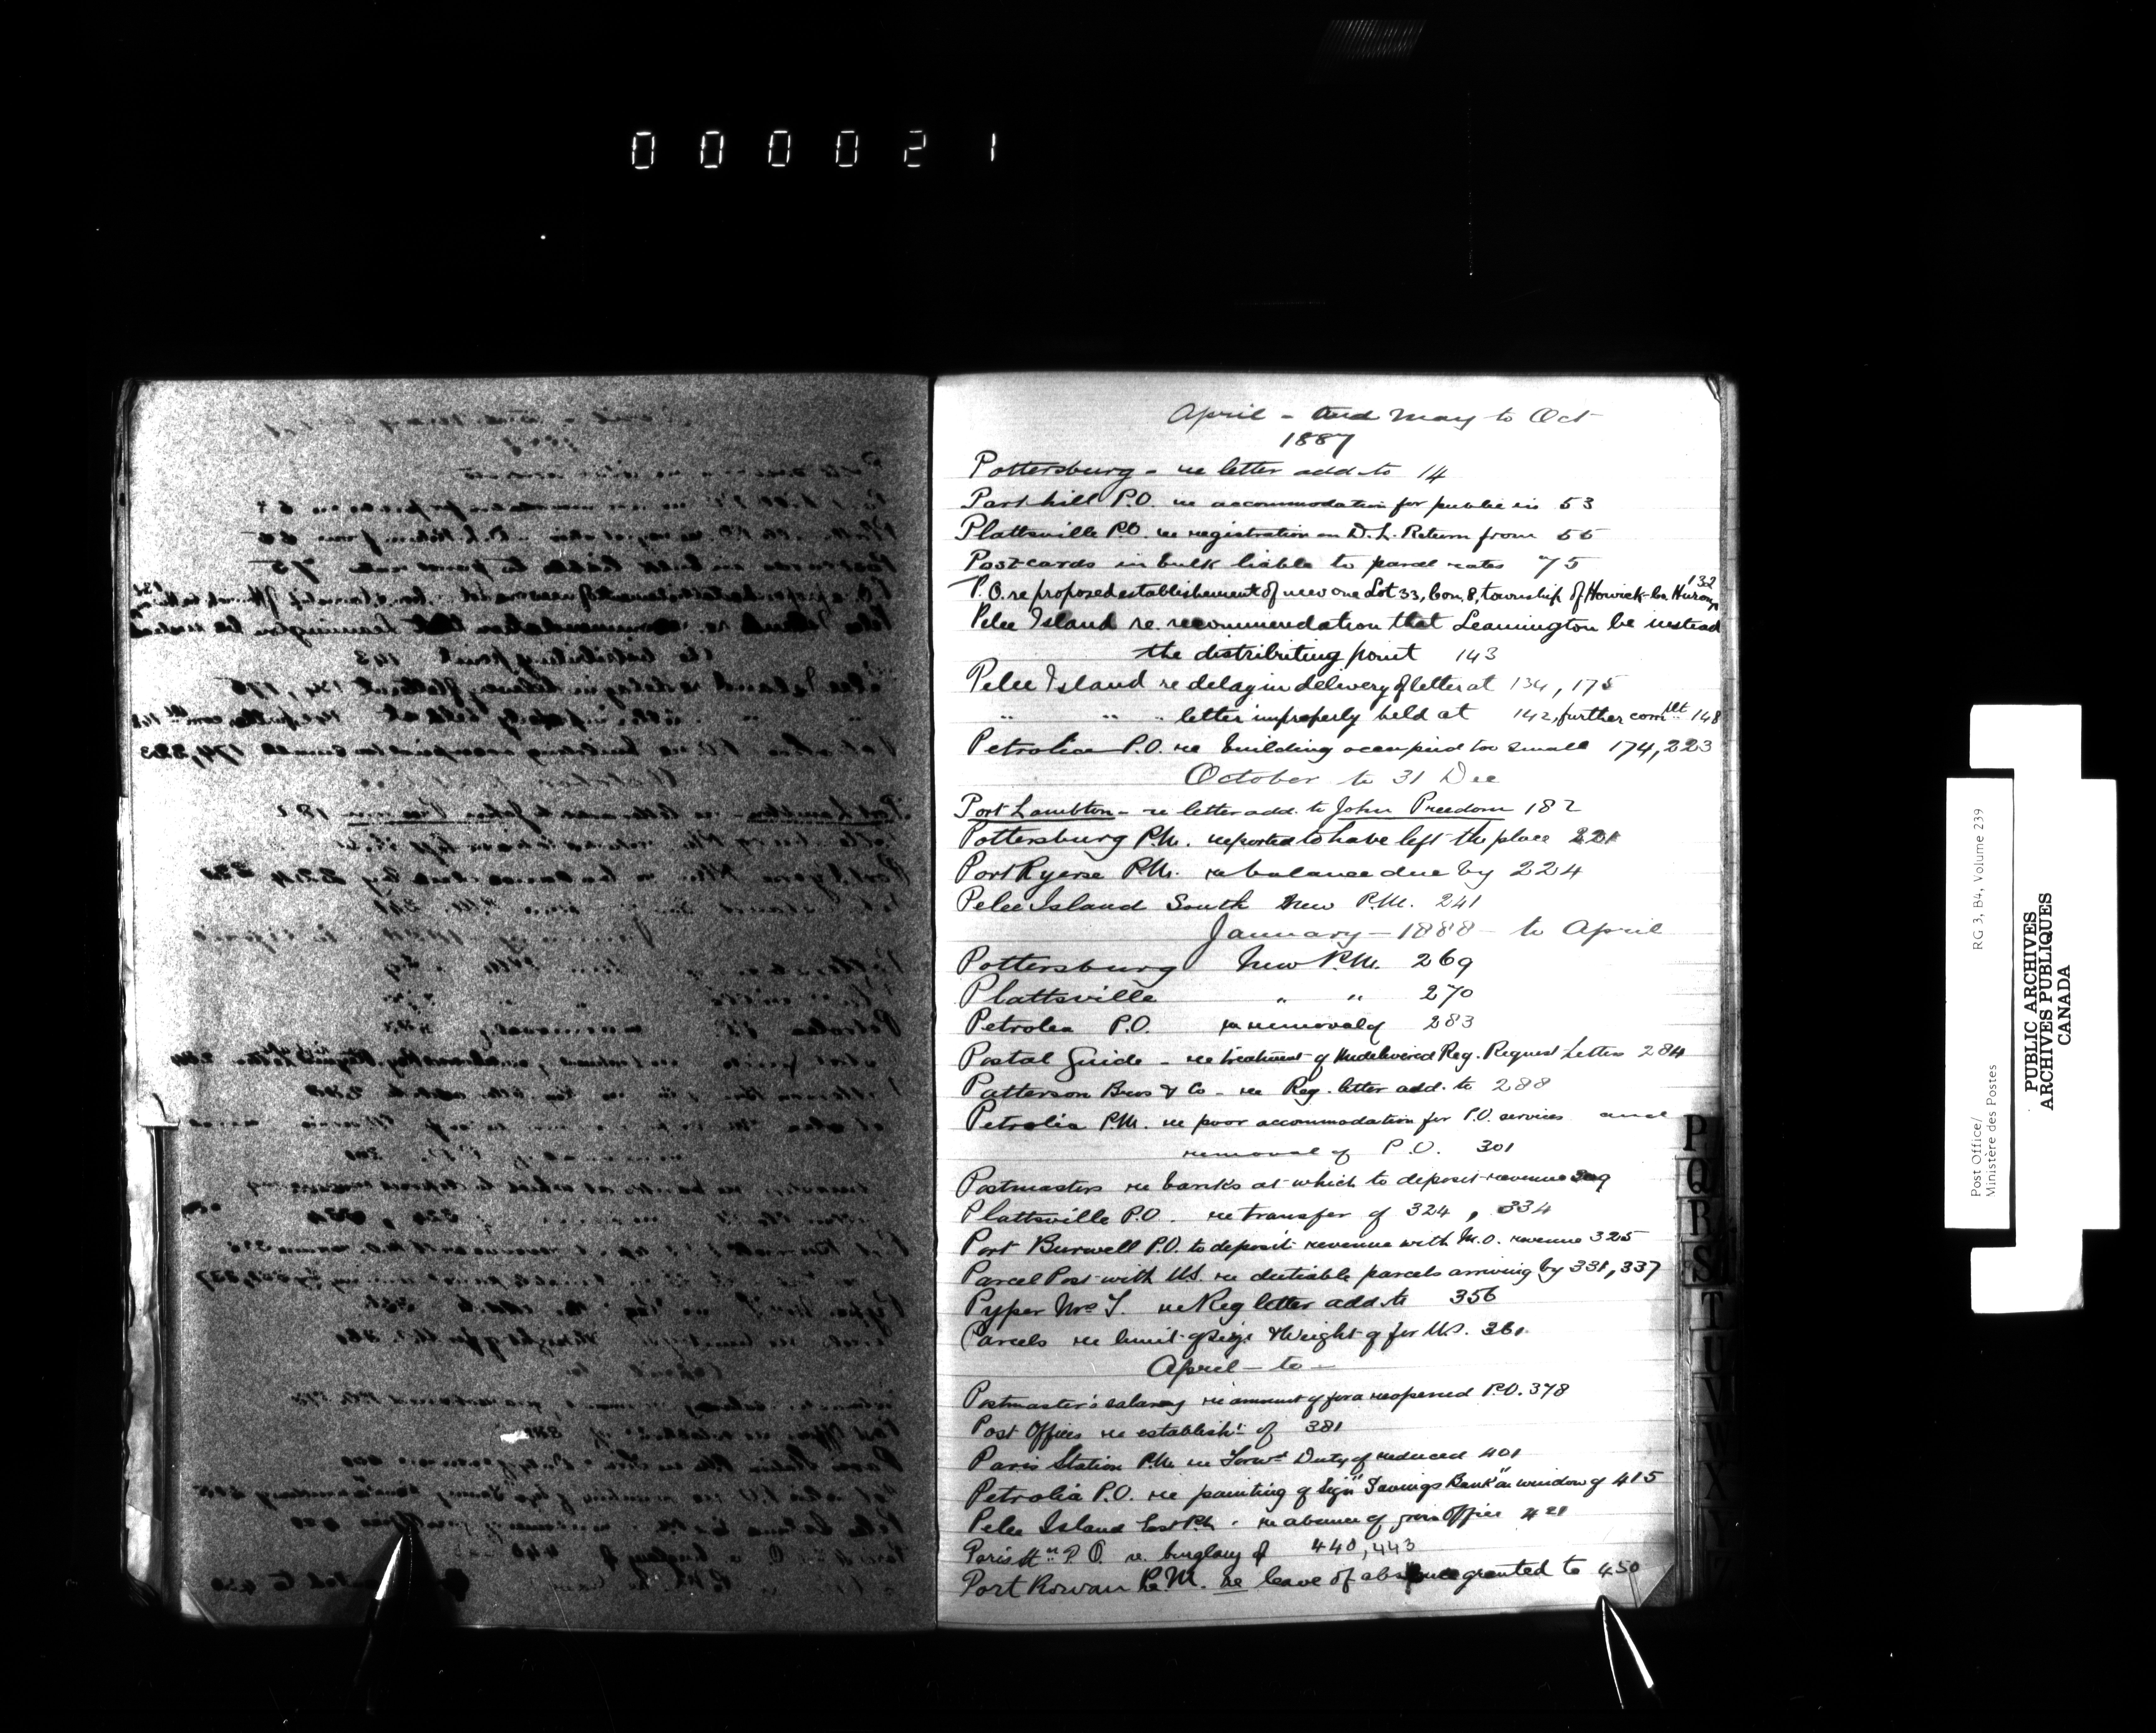 000021
April - and May to Oct
1887
Pottersburg - re letter add. to 14
Parkhill P.O. re accommodation for public in 53
Plattsville P.O. re registration on D.L. Return from 55
Postcards in bulk liable to parcel rates 75
P.O. re proposed establishement of new one Lot 33, Con. 8, township of Howick - Co. Huron 132
Pelee Island re recommendation that Leamington be instead
the distributing point 143
Pelee Island re delay in delivery of letter at 134, 175
" " " letter improperly held at 142, further complt 148
Petrolia P.O. re building occupied too small 174, 223
October to 31 Dec
Port Lambton - re letter add. to John Preedom 182
Pottersburg P.M. reported to have left the place 221
Port Ryerse P.M. re balance due by 224
Pelee Island South New P.M. 241
January - 1888 - to April
Pottersburg New P.M. 269
Plattsville " " 270
Petrolea P.O. re removal of 283
Postal Guide - re treatment of Undelivered Reg. Request Letters 284
Patterson Bros & Co - re Reg. letter add. to 288
Petrolia P.M. re poor accommodation for P.O. services and
removal of P.O. 301
Postmasters re banks at which to deposit revenue 309
Plattsville P.O. re transfer of 324, 334
Port Burwell P.O. to deposit revenue with M.O. revenue 325
Parcel Post with U.S. re dutiable parcels arriving by 331, 337
Pyper Mrs T. re Reg letter add. to 356
Parcels re limit of size & Weight of for U.S. 361
April - to -
Postmaster's salary re amount of for a reopened P.O. 378
Post Offices re establisht of 381
Paris Station P.M. re Forwd Duty of reduced 401
Petrolia P.O. re painting of sign "Savings Bank" on window of 415
Pelee Island East P.M. re absence of from Office 421
Paris Stn P.O. re burglary of 440, 443
Port Rowan P.M. re leave of absence granted to 450
P
Q
R
S
T
U
V
W
X
Y
Z
Post Office/
Ministère des Postes
RG 3, B4, Volume 239
PUBLIC ARCHIVES
ARCHIVES PUBLIQUES
CANADA